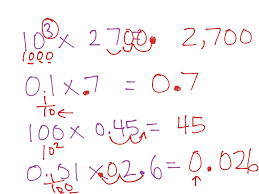 10³ x 2.700. 2,700
1000
0.1 x .7 = 0.7
1/10 ←
100 x 0.45 = 45
10²
0.01 x 02.6 = 0.026
1/100